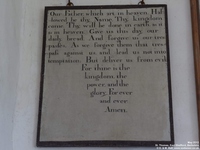 Our Father, which art in heaven, Hal
lowed be thy Name. Thy kingdom
come. Thy will be done in earth, as it
is in heaven. Give us this day our
daily bread. And forgive us our tres
passes. As we forgive them that tres
pass against us. and lead us not into
temptation. But deliver us from evil
For thine is the
kingdom, the
power and the
glory For ever
and ever.
Amen.